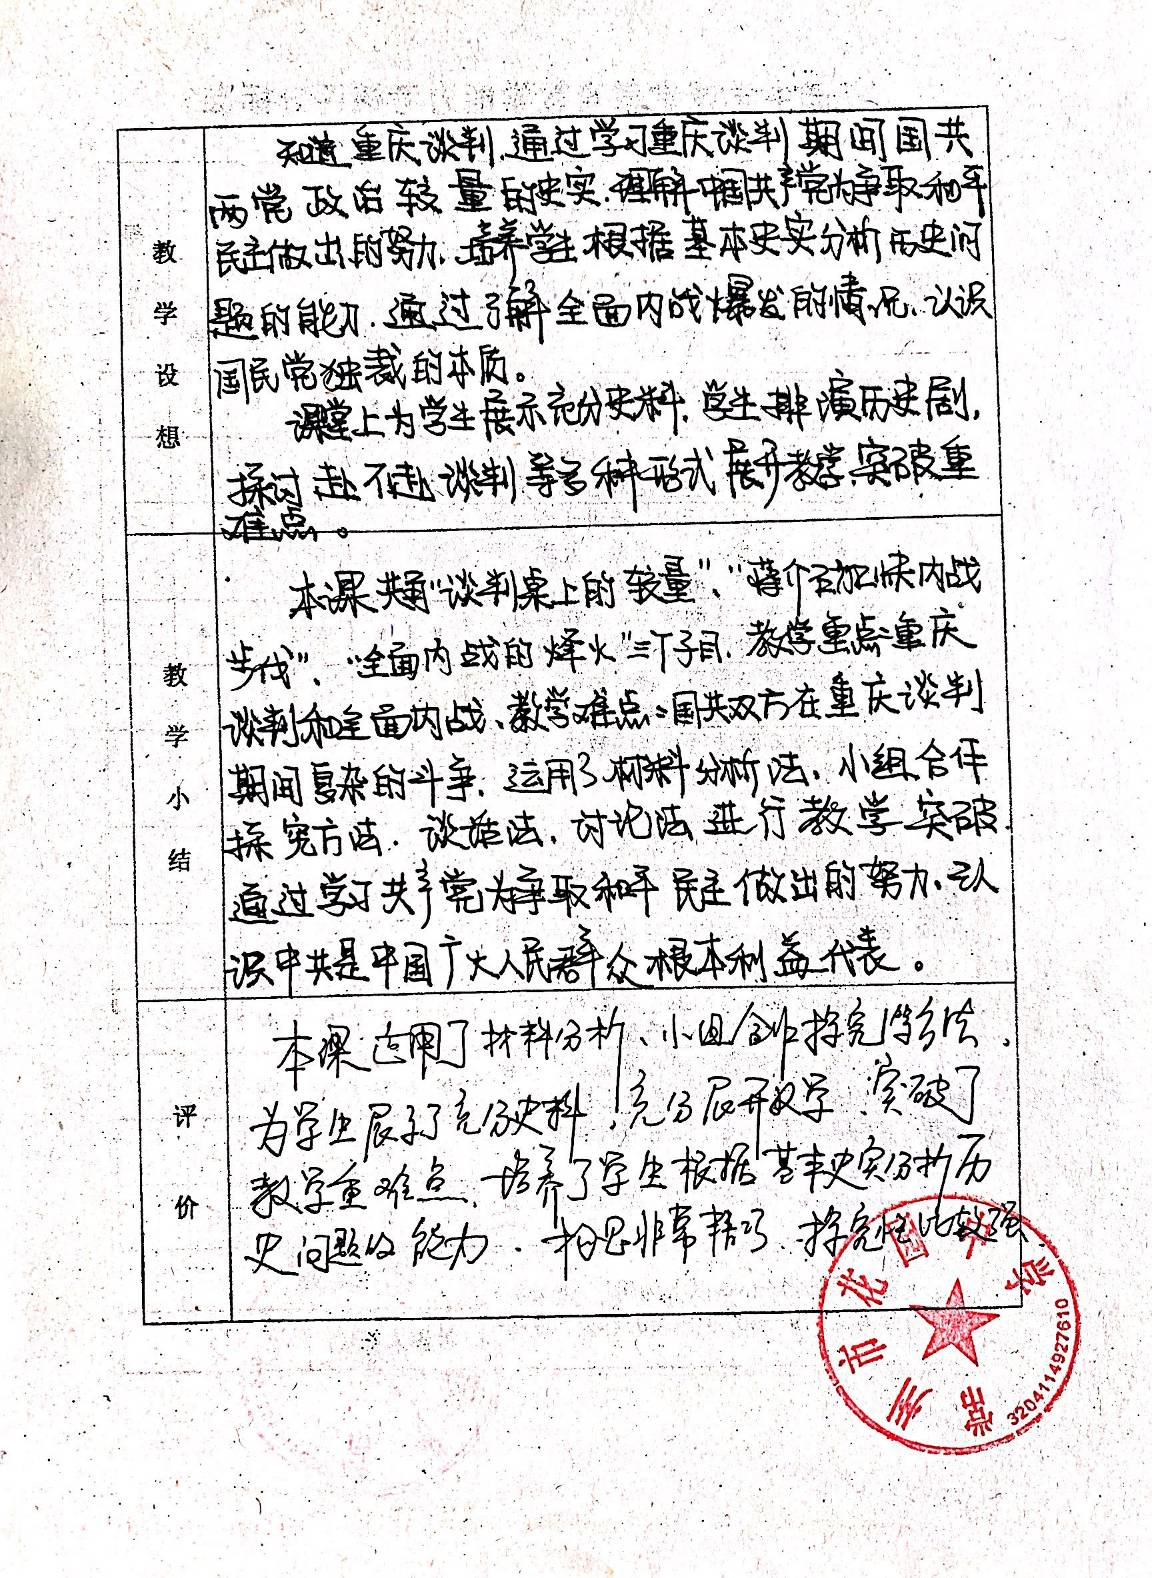 教学设想
知道重庆谈判,通过学习重庆谈判期间国共
两党政治较量的史实,理解中国共产党为争取和平
民主做出的努力,培养学生根据基本史实分析历史问
题的能力,通过了解全面内战爆发的情况,认识
国民党独裁的本质。
课堂上为学生展示充分史料,学生排演历史剧,
探讨赴不赴谈判等多种形式展开教学,突破重
难点。
教学小结
本课共通“谈判桌上的较量”、“蒋介石加快内战
步伐”、“全面内战的烽火”三个子目,教学重点:重庆
谈判和全面内战、教学难点:国共双方在重庆谈判
期间复杂的斗争,运用了材料分析法,小组合作
探究方法,谈话法,讨论法进行教学突破.
通过学习共产党为争取和平民主做出的努力,认
识中共是中国广大人民群众根本利益代表。
评价
本课运用了材料分析、小组合作探究等方法,
为学生展示了充分史料,充分展开教学,突破了
教学重难点,培养了学生根据基本史实分析历
史问题的能力.构思非常精巧,探究性比较强.
常州市花园中学
3204114927610